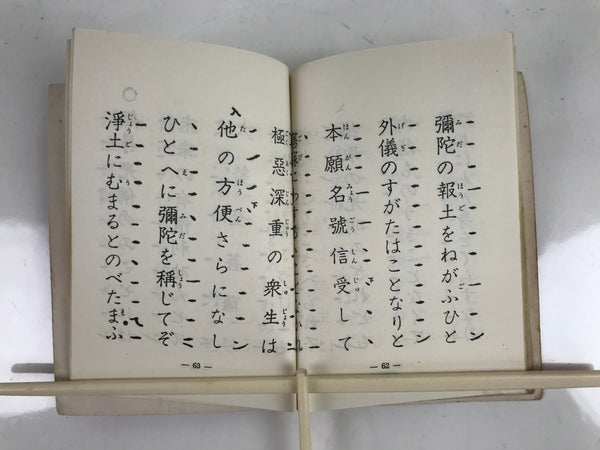 彌陀の報土をねがふひと
外儀のすがたはことなりと
本願名號信受して
— 62 —
極惡深重の衆生は
他の方便さらになし
ひとへに彌陀を稱じてぞ
淨土にむまるとのべたまふ
— 63 —